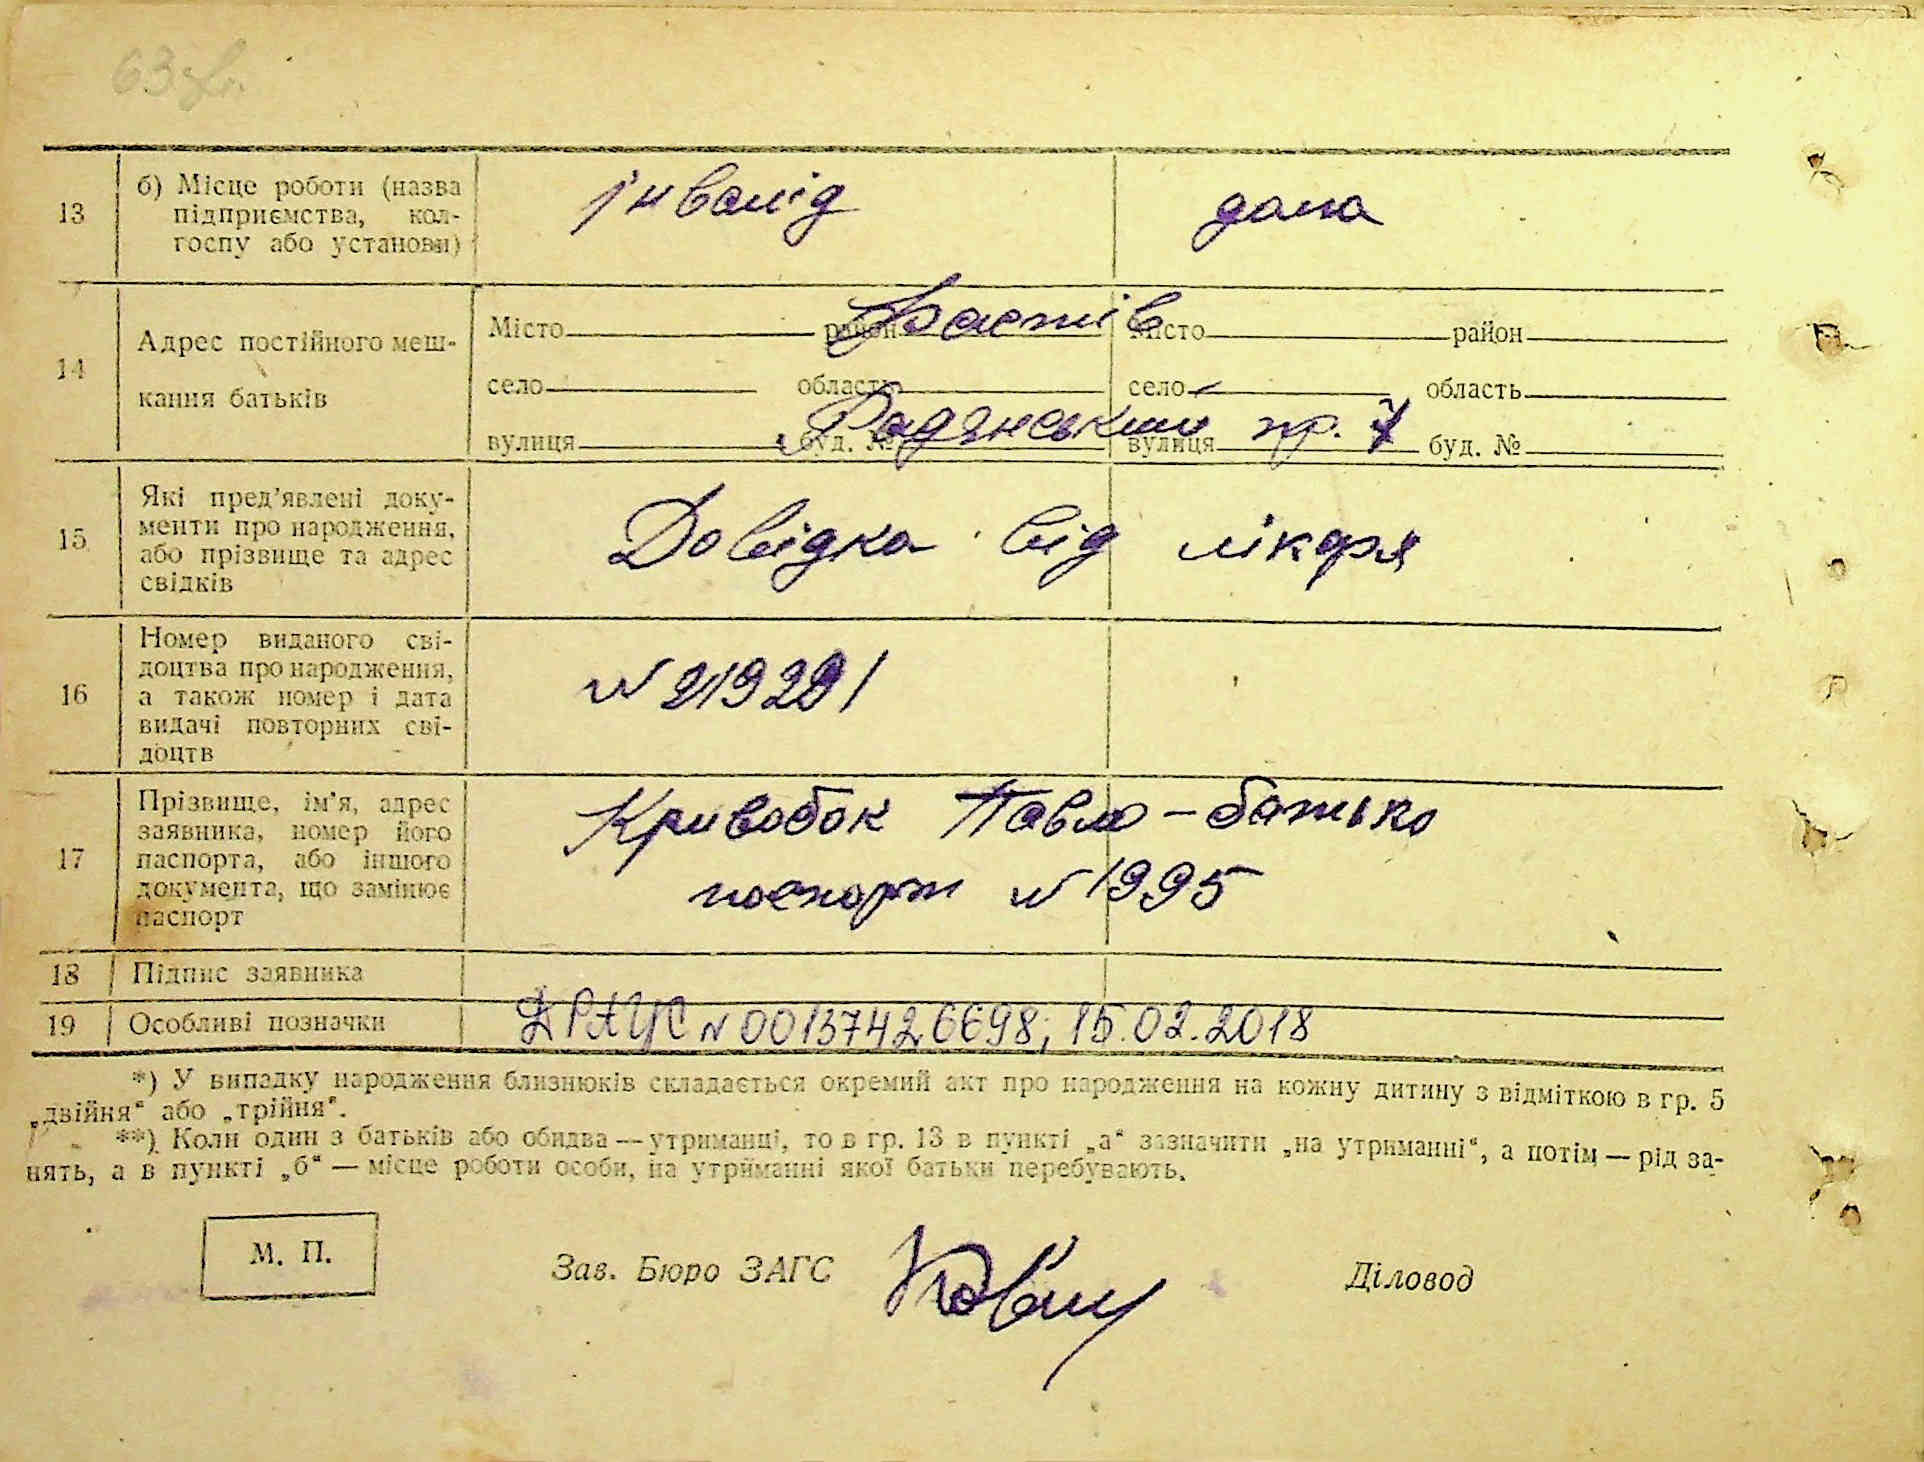 63 зв.
13 б) Місце роботи (назва
підприємства, кол-
госпу або установи)
інвалід дома
14 Адрес постійного меш-
кання батьків
Місто район Місто район
Фастів
село область село область
Радянський пр. 7
вулиця буд. № вулиця буд. №
15 Які пред'явлені доку-
менти про народження,
або прізвище та адрес
свідків
Довідка від лікаря
16 Номер виданого сві-
доцтва про народження,
а також номер і дата
видачі повторних сві-
доцтв
17 Прізвище, ім'я, адрес
заявника, номер його
паспорта, або іншого
документа, що замінює
паспорт
Кривобок Павло - батько
паспорт № 1995
18 Підпис заявника
19 Особливі позначки
ДРАЦС № 00137426698; 15.02.2018
*) У випадку народження близнюків складається окремий акт про народження на кожну дитину з відміткою в гр. 5
„двійня“ або „трійня“.
**) Коли один з батьків або обидва — утриманці, то в гр. 13 в пункті „а“ зазначити „на утриманні“, а потім — рід за-
нять, а в пункті „б“ — місце роботи особи, на утриманні якої батьки перебувають.
М. П.
Зав. Бюро ЗАГС Діловод